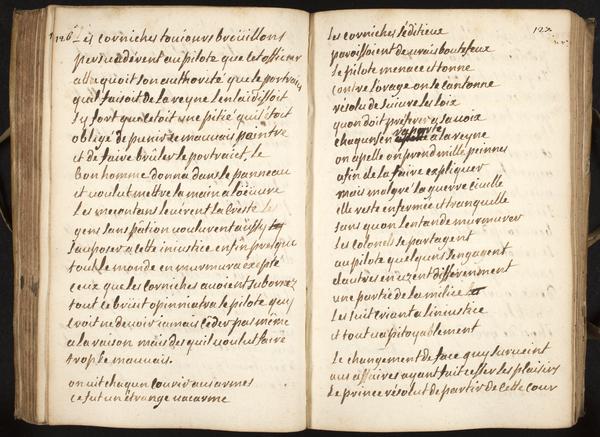 126
Les corniches toujours broüillons
persuadérent au pilote que cet officier
attaquoit son authorité que le portrait
quil faisoit de la reyne l'enlaidissoit
sy fort que cetoit une pitié quil étoit
obligé de punir ce mauvais paintre
et de faire brûler le portraict, le
bon homme donna dans le panneau
et voulut mettre la main a lœuvre
les mécontans levérent la creste les
gens sans pâtion voulurent aussy
sauposer a cette iniustice enfin presque
tout le monde en murmura excepté
ceux que les corniches avoient subornez
tout ce bruit opinniatra le pilote quy
croit ne devoir iamais céder pas même
a la raison mais des quil voulut faire
trop le mauvais.
on vit chaqun courir aux armes
ce fut un étrange vacarme
127
les corniches séditieux
paroissoient de vrais boutefeux
le pilote menace et tonne
contre lorage on se cantonne
résolu de suivre les loix
quon doit préférer a sa voix
chaqun s'en raporte a la reyne
on apelle on prend mille peinnes
afin de la faire expliquer
mais malgré la guerre civille
elle reste enfermée et tranquille
sans quon l'entande murmurer
les colonels se partagent
au pilote quelquuns s'engagent
d'autres en uzent differemment
une partie de la milice
les suit criant a liniustice
et tout va pitoyablement
Le changement de face quy survient
aux affaires ayant fait cesser les plaisirs
le prince résolut de partir de cette cour